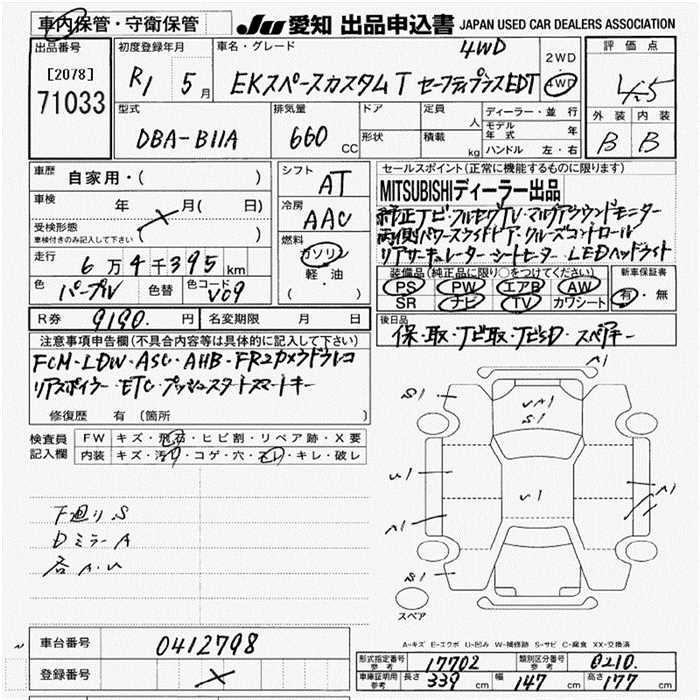 車内保管・守衛保管
JU 愛知 出品申込書 JAPAN USED CAR DEALERS ASSOCIATION
出品番号 初度登録年月 車名・グレード 4WD 2WD 評価点
[2078] R1 5月 EKスペースカスタムT セーフティプラスEDT 4WD 4.5
71033
型式 排気量 ドア 定員 人 ディーラー・並行 外装 内装
DBA-B11A 660 CC 形状 積載 kg モデル年式 年 B B
ハンドル 左・右
車歴 自家用・( ) シフト AT セールスポイント(正常に機能するものに限ります)
車検 年 月( 日) 冷房 AAC MITSUBISHIディーラー出品
受検形態 純正ナビ・フルセグTV・マルチアラウンドモニター
車検付きのみ記入して下さい ( ) 燃料 ガソリン 両側パワースライドドア・クルーズコントロール
走行 6万4千395km 軽・油 リアサーキュレーター・シートヒーター・LEDヘッドライト
色 パープル 色替 色コード V09 ( )
装備品(純正品に限り○をつけてください) 新車保証書
PS PW エアB AW 有・無
SR ナビ TV カワシート
R券 9190.円 名変期限 月 日 後日品
保・取・ナビ取・ナビSD・スペアキー
注意事項申告欄(不具合内容等は具体的に記入して下さい)
FCM・LDW・ASC・AHB・FR2カメラドラレコ
リアスポイラー・ETC・プッシュスタートスマートキー
修復歴 有(箇所 )
検査員記入欄 FW キズ・飛石・ヒビ割・リペア跡・X要
内装 キズ・汚れ・コゲ・穴・スレ・キレ・破レ
A1
S1
UA1
S1
U1
U1
A1
A1
S1
スペア
下廻りS
DミラーA
A.U
A-キズ E-エクボ U-凹み W-補修跡 S-サビ C-腐食 XX-交換済
車台番号 0412798
登録番号
形式指定番号 参考 17702 類別区分番号 参考 0210.
車庫証明用 参考 長さ 339 cm 幅 147 cm 高さ 177 cm